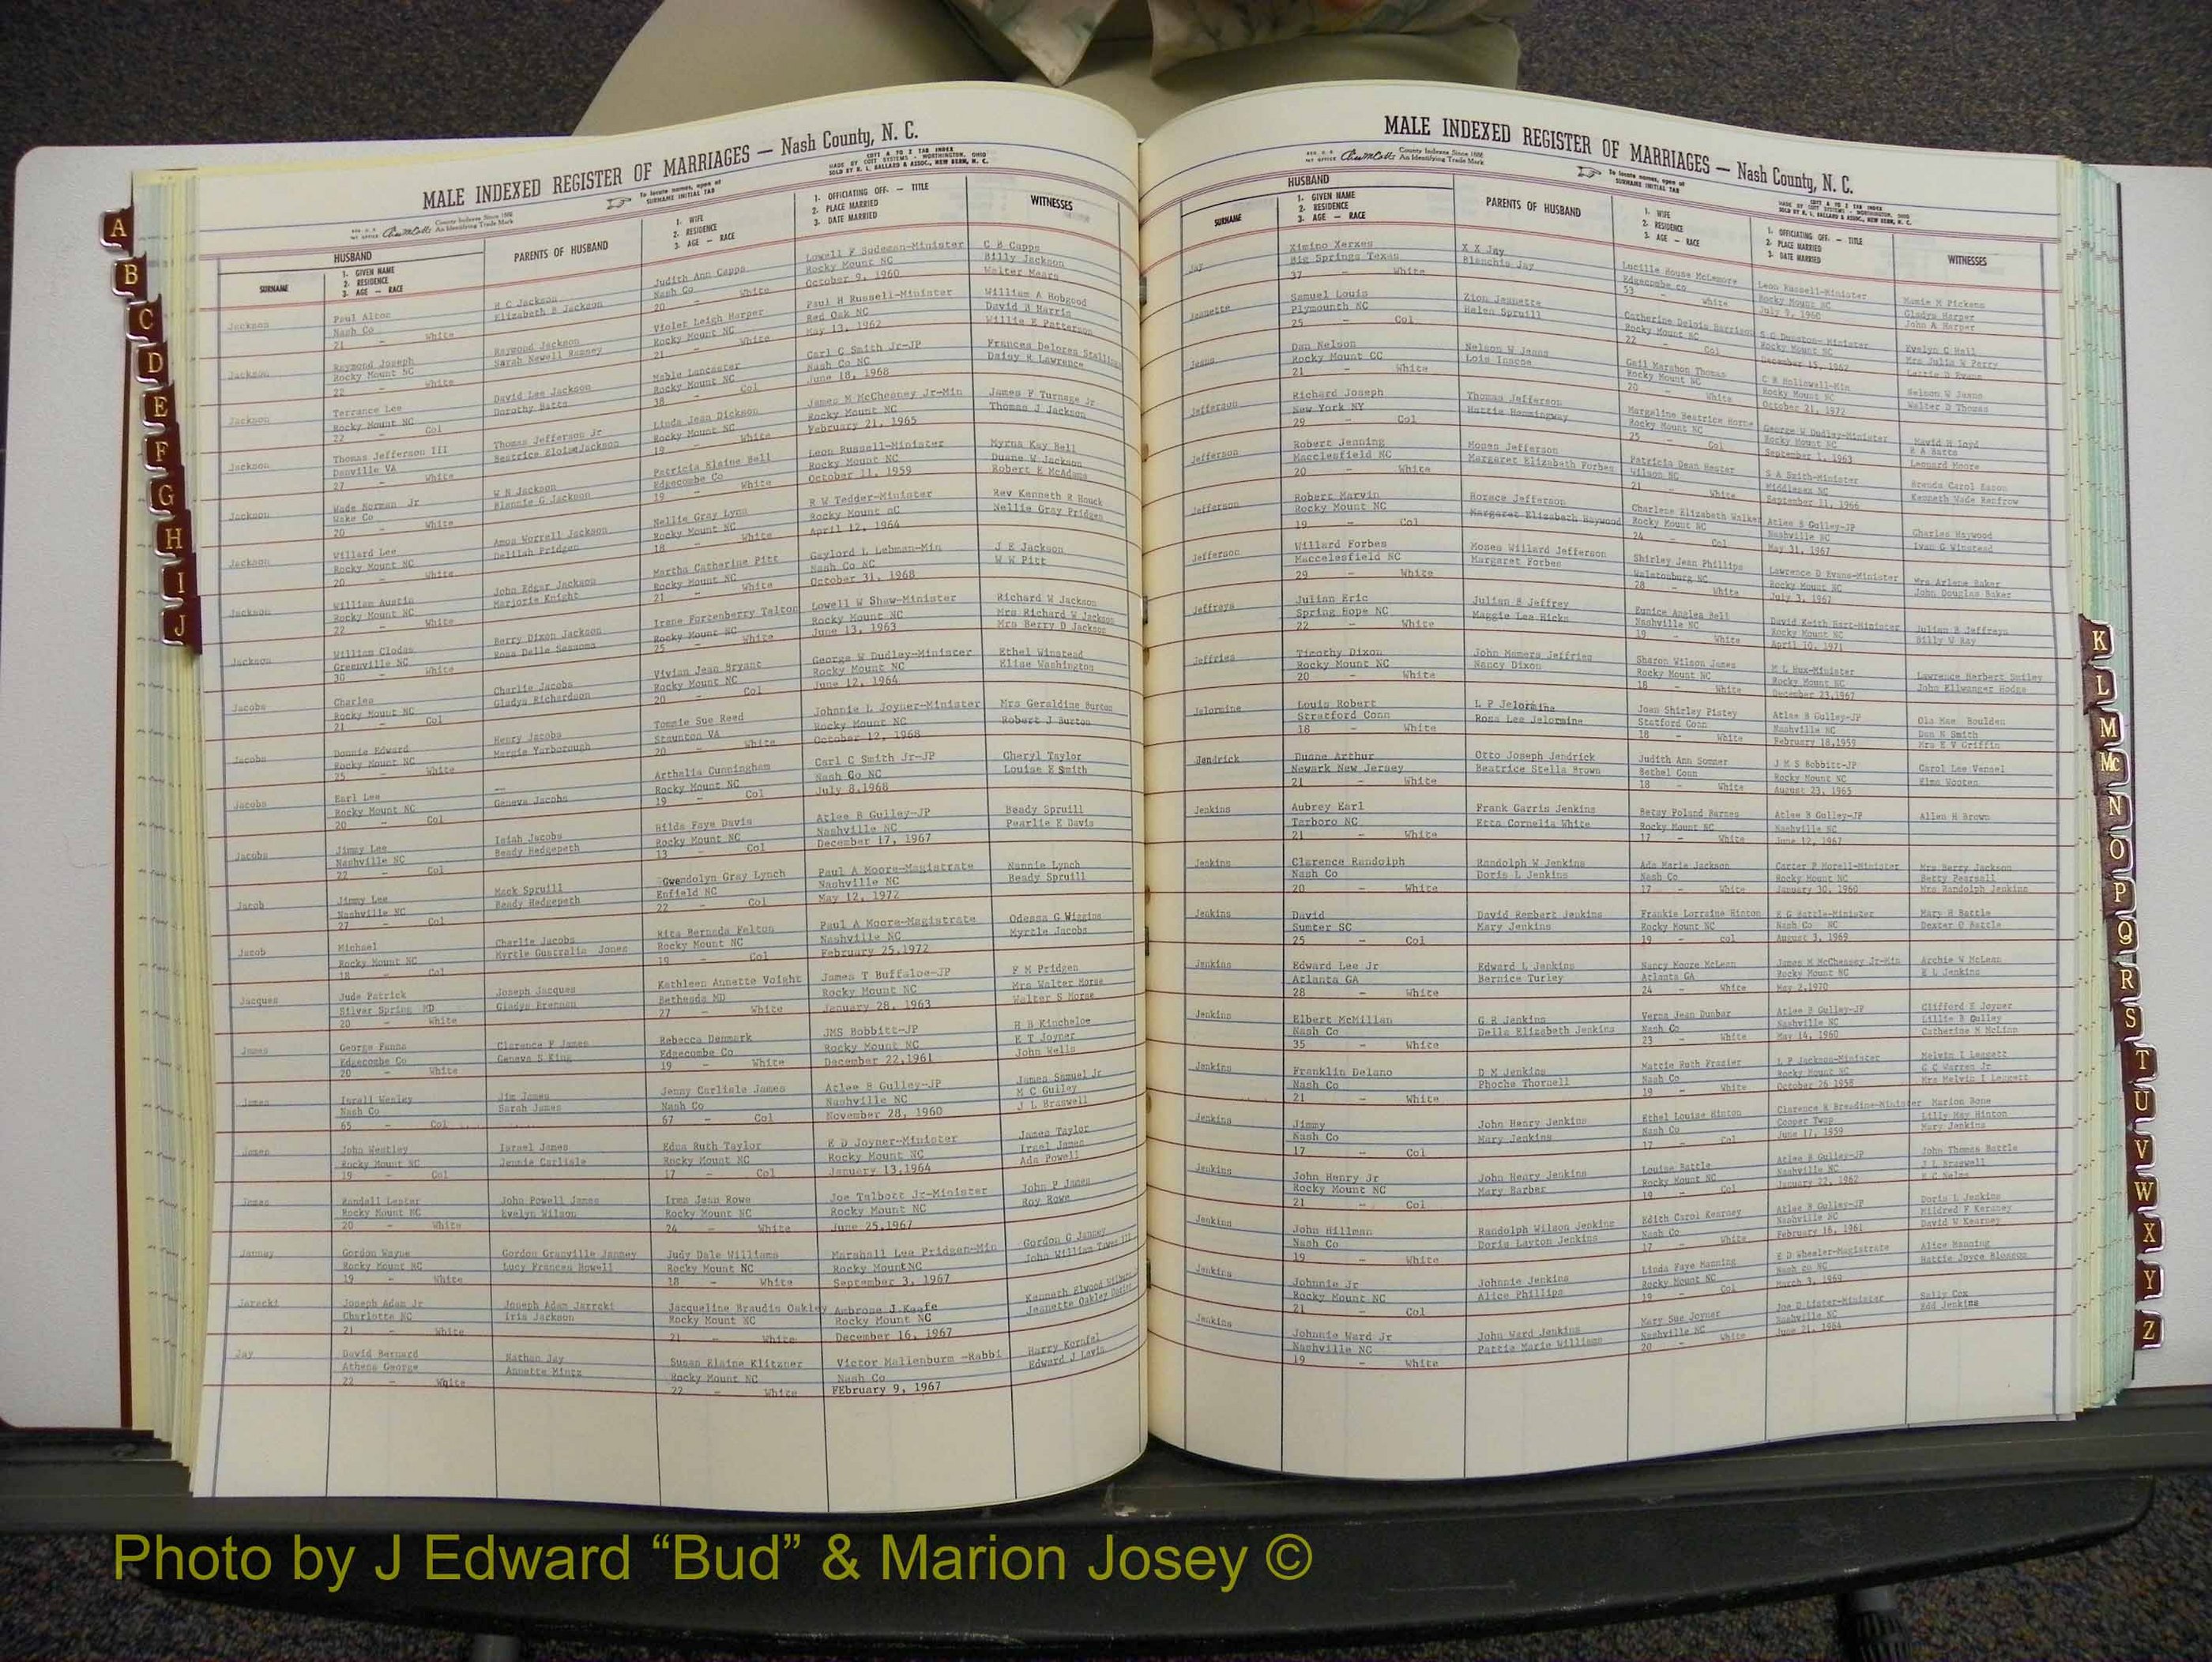 MALE INDEXED REGISTER OF MARRIAGES — Nash County, N. C.
County Indexes Since 1888
An Identifying Trade Mark
To locate names, open at
SURNAME INITIAL TAB
COTT A TO Z TAB INDEX
MADE BY COTT SYSTEMS - WORTHINGTON, OHIO
SOLD BY R. L. BALLARD & ASSOC., NEW BERN, N. C.
HUSBAND
SURNAME
1. GIVEN NAME
2. RESIDENCE
3. AGE — RACE
PARENTS OF HUSBAND
1. WIFE
2. RESIDENCE
3. AGE — RACE
1. OFFICIATING OFF. — TITLE
2. PLACE MARRIED
3. DATE MARRIED
WITNESSES
Jackson Paul Alton H C Jackson Judith Ann Capps Lowell F Sudeman-Minister C B Capps
Nash Co Elizabeth B Jackson Nash Co Rocky Mount NC Billy Jackson
21 - White 20 - White October 9, 1960 Walter Mears
Jackson Raymond Joseph Raymond Jackson Violet Leigh Harper Paul H Russell-Minister William A Hobgood
Rocky Mount NC Sarah Newell Ramsey Rocky Mount NC Red Oak NC David B Harris
22 - White 21 - White May 13, 1962 Willie E Patterson
Jackson Terrance Lee David Lee Jackson Mable Lancaster Carl C Smith Jr-JP Frances Delores
Rocky Mount NC Dorothy Batts Rocky Mount NC Nash Co NC Daisy R Lawrence
22 - Col 18 - Col June 18, 1968
Jackson Thomas Jefferson III Thomas Jefferson Jr Linda Jean Dickson James M McChesney Jr-Min James F Turnage Jr
Danville VA Beatrice EloiseJackson Rocky Mount NC Rocky Mount NC Thomas J Jackson
27 - White 19 - White February 21, 1965
Jackson Wade Norman Jr W N Jackson Patricia Elaine Bell Leon Russell-Minister Myrna Kay Bell
Wake Co Blannie G Jackson Edgecombe Co Rocky Mount NC Duane W Jackson
20 - White 19 - White October 11, 1959 Robert E McAdams
Jackson Willard Lee Amos Worrell Jackson Nellie Gray Lynn R W Tedder-Minister Rev Kenneth R Houck
Rocky Mount NC Delilah Pridgen Rocky Mount NC Rocky Mount nC Nellie Gray Pridgen
20 - White 18 - White April 12, 1964
Jackson William Austin John Edgar Jackson Martha Catherine Pitt Gaylord L Lehman-Min J E Jackson
Rocky Mount NC Marjorie Knight Rocky Mount NC Nash Co NC W W Pitt
22 - White 21 - White October 31, 1968
Jackson William Clodas Berry Dixon Jackson Irene Fortenberry Talton Lowell W Shaw-Minister Richard W Jackson
Greenville NC Rosa Delle Sessoms Rocky Mount NC Rocky Mount NC Mrs Richard W Jackson
30 - White 25 - White June 13, 1963 Mrs Berry D Jackson
Jacobs Charles Charlie Jacobs Vivian Jean Bryant George W Dudley-Minister Ethel Winstead
Rocky Mount NC Gladys Richardson Rocky Mount NC Rocky Mount NC Elise Washington
21 - Col 20 - Col June 12, 1964
Jacobs Donnie Edward Henry Jacobs Tommie Sue Reed Johnnie L Joyner-Minister Mrs Geraldine Burton
Rocky Mount NC Margie Yarborough Staunton VA Rocky Mount NC Robert J Burton
25 - White 20 - White October 12, 1968
Jacobs Earl Lee --- Arthalia Cunningham Carl C Smith Jr-JP Cheryl Taylor
Rocky Mount NC Geneva Jacobs Rocky Mount NC Nash Co NC Louise E Smith
20 - Col 19 - Col July 8,1968
Jacobs Jimmy Lee Isiah Jacobs Hilda Faye Davis Atlee B Gulley-JP Beady Spruill
Nashville NC Beady Hedgepeth Rocky Mount NC Nashville NC Pearlie E Davis
22 - Col 13 - Col December 17, 1967
Jacob Jimmy Lee Mack Spruill Gwendolyn Gray Lynch Paul A Moore-Magistrate Nannie Lynch
Nashville NC Beady Hedgepeth Enfield NC Nashville NC Beady Spruill
27 - Col 22 - Col May 12, 1972
Jacob Michael Charlie Jacobs Rita Bernada Felton Paul A Moore-Magistrate Odessa G Wiggins
Rocky Mount NC Myrtle Gustralia Jones Rocky Mount NC Nashville NC Myrtle Jacobs
18 - Col 19 - Col February 25,1972
Jacques Jude Patrick Joseph Jacques Kathleen Annette Voight James T Buffaloe-JP F M Pridgen
Silver Spring MD Gladys Brennan Bethesda MD Rocky Mount NC Mrs Walter Morse
20 - White 27 - White January 28, 1963 Walter S Morse
James George Fanns Clarence F James Rebecca Denmark JMS Bobbitt-JP H B Kincheloe
Edgecombe Co Geneva S King Edgecombe Co Rocky Mount NC E T Joyner
20 - White 19 - White December 22,1961 John Wells
James Israll Wesley Jim James Jenny Carlisle James Atlee B Gulley-JP James Samuel Jr
Nash Co Sarah James Nash Co Nashville NC M C Gulley
65 - Col 67 - Col November 28, 1960 J L Braswell
James John Westley Israel James Edna Ruth Taylor E D Joyner-Minister James Taylor
Rocky Mount NC Jennie Carlisle Rocky Mount NC Rocky Mount NC Israel James
19 - Col 17 - Col January 13,1964 Ada Powell
James Randall Lester John Powell James Irma Jean Rowe Joe Talbott Jr-Minister John P James
Rocky Mount NC Evelyn Wilson Rocky Mount NC Rocky Mount NC Roy Rowe
20 - White 24 - White June 25,1967
Janney Gordon Wayne Gordon Granville Janney Judy Dale Williams Marshall Lee Pridgen-Min Gordon G Janney
Rocky Mount NC Lucy Frances Howell Rocky Mount NC Rocky MountNC John William III
19 - White 18 - White September 3, 1967
Jarecki Joseph Adam Jr Joseph Adam Jarrcki Jacqueline Braudis Oakley Ambrose J Keafe Kenneth Elwood
Charlotte NC Iris Jackson Rocky Mount NC Rocky Mount NC Jeanette Oakley
21 - White 21 - White December 16, 1967
Jay David Bernard Nathan Jay Susan Elaine Klitzner Victor Mallenburm -Rabbi Harry Kornfal
Athens George Annette Mintz Rocky Mount NC Nash Co Edward J Lavis
22 - White 22 - White FEbruary 9, 1967
MALE INDEXED REGISTER OF MARRIAGES — Nash County, N. C.
County Indexes Since 1888
An Identifying Trade Mark
To locate names, open at
SURNAME INITIAL TAB
COTT A TO Z TAB INDEX
MADE BY COTT SYSTEMS - WORTHINGTON, OHIO
SOLD BY R. L. BALLARD & ASSOC., NEW BERN, N. C.
HUSBAND
SURNAME
1. GIVEN NAME
2. RESIDENCE
3. AGE — RACE
PARENTS OF HUSBAND
1. WIFE
2. RESIDENCE
3. AGE — RACE
1. OFFICIATING OFF. — TITLE
2. PLACE MARRIED
3. DATE MARRIED
WITNESSES
Jay Ximino Xerxes X X Jay Lucille House McLemore Leon Russell-Minister Mamie M Pickens
Big Springs Texas Blanchis Jay Edgecombe co Rocky Mount NC Gladys Harper
37 - White 53 - White July 9, 1960 John A Harper
Jeanette Samuel Louis Zion Jeanette Catherine Delois Harrison S G Dunston-Minister Evelyn C Hall
Plymounth NC Helen Spruill Rocky Mount NC Rocky Mount NC Mrs Julia W Perry
25 - Col 22 - Col December 15, 1962 Lettie D Evans
Dan Nelson Nelson W Janns Gail Marahon Thomas C B Hollowell-Min Nelson W Janns
Rocky Mount CC Lois Inscoe Rocky Mount NC Rocky Mount NC Walter D Thomas
21 - White 20 - White October 21, 1972
Jefferson Richard Joseph Thomas Jefferson Margeline Beatrice Horne George W Dudley-Minister David H loyd
New York NY Hattie Hemmingway Rocky Mount NC Rocky Mount NC R A Batts
29 - Col 25 - Col September 1, 1963 Leonard Moore
Jefferson Robert Jenning Moses Jefferson Patricia Dean Hester S A Smith-Minister Brenda Carol Eason
Macclesfield NC Margaret Elizabeth Forbes Wilson NC Middlesex NC Kenneth Wade Renfrow
20 - White 21 - White September 11, 1966
Jefferson Robert Marvin Horace Jefferson Charlene Elizabeth Walker Atlee B Gulley-JP Charles Haywood
Rocky Mount NC Margaret Elizabeth Haywood Rocky Mount NC Nashville NC Ivan G Winstead
19 - Col 24 - Col May 31, 1967
Jefferson Willard Forbes Moses Willard Jefferson Shirley Jean Phillips Lawrence D Evans-Minister Mrs Arlene Baker
Maccelesfield NC Margaret Forbes Walstonburg NC Rocky Mount NC John Douglas Baker
29 - White 28 - White July 3, 1967
Jeffreys Julian Eric Julian B Jeffrey Eunice Anglea Bell David Keith Hart-Minister Julian B Jeffreys
Spring Hope NC Maggie Lee Hicks Nashville NC Rocky Mount NC Billy W Ray
22 - White 19 - White April 10, 1971
Jeffries Timothy Dixon John Homers Jeffries Sharon Wilson James M L Hux-Minister Lawrence Herbert Smiley
Rocky Mount NC Nancy Dixon Rocky Mount NC Rocky Mount NC John Ellwanger Hodge
20 - White 18 - White December 23,1967
Jelormine Louis Robert L P Jelormine Joan Shirley Pistey Atlee B Gulley-JP Ola Mae Boulden
Stratford Conn Rosa Lee Jelormine Statford Conn Nashville NC Dan N Smith
18 - White 18 - White February 18,1959 Mrs E V Griffin
Jendrick Duane Arthur Otto Joseph Jendrick Judith Ann Sonner J M S Bobbitt-JP Carol Lee Vensel
Newark New Jersey Beatrice Stella Brown Bethel Conn Rocky Mount NC Elma Wooten
21 - White 18 - White August 23, 1965
Jenkins Aubrey Earl Frank Garris Jenkins Betsy Poland Barnes Atlee B Gulley-JP Allen H Brown
Tarboro NC Etta Cornelia White Rocky Mount NC Nashville NC
21 - White 17 - White June 12, 1967
Jenkins Clarence Randolph Randolph W Jenkins Ada Marie Jackson Carter P Morell-Minister Mrs Berry Jackson
Nash Co Doris L Jenkins Nash Co Rocky Mount NC Betty Pearsall
20 - White 17 - White January 30, 1960 Mrs Randolph Jenkins
Jenkins David David Rembert Jenkins Frankie Lorraine Hinton E G Battle-Minister Mary B Battle
Sumter SC Mary Jenkins Rocky Mount NC Nash Co NC Dexter O Battle
25 - Col 19 - col August 3, 1969
Jenkins Edward Lee Jr Edward L Jenkins Nancy Moore McLean James M McChesney Jr-Min Archie W McLean
Atlanta GA Bernice Turley Atlanta GA Rocky Mount NC E L Jenkins
28 - White 24 - White May 2,1970
Jenkins Elbert McMillan G R Jenkins Verna Jean Dunbar Atlee B Gulley-JP Clifford E Joyner
Nash Co Della Elizabeth Jenkins Nash Co Nashville NC Lillie B Gulley
35 - White 23 - White May 14, 1960 Catherine M McLinn
Jenkins Franklin Delano D M Jenkins Mattie Ruth Frazier L P Jackson-Minister Melvin I Leggett
Nash Co Phoche Thornell Nash Co Rocky Mount NC G C Warren Jr
21 - White 19 - White October 26 1958 Mrs Melvin I Leggett
Jenkins Jimmy John Henry Jenkins Ethel Louise Hinton Clarence R Breadine-Minister Marion Bone
Nash Co Mary Jenkins Nash Co Cooper Twsp Lilly May Hinton
17 - Col 17 - Col June 17, 1959 Mary Jenkins
Jenkins John Henry Jr John Henry Jenkins Louise Battle Atlee B Gulley-JP John Thomas Battle
Rocky Mount NC Mary Barber Rocky Mount NC Nashville NC J L Braswell
21 - Col 19 - Col January 22, 1962 E C Nelms
Jenkins John Hillman Randolph Wilson Jenkins Edith Carol Kearney Atlee B Gulley-JP Doris L Jenkins
Nash Co Doris Layton Jenkins Nash Co Nashville NC Mildred F Kearney
19 - White 17 - White February 16, 1961 David W Kearney
Jenkins Johnnie Jr Johnnie Jenkins Linda Faye Manning E D Wheeler-Magistrate Alice Manning
Rocky Mount NC Alice Phillips Rocky Mount NC Nash co NC Hattie Joyce Blossom
21 - Col 19 - Col March 3, 1969
Jenkins Johnnie Ward Jr John Ward Jenkins Mary Sue Joyner Joe D Lister-Minister Sally Cox
Nashville NC Pattie Marie Williams Nashville NC Nashville NC Edd Jenkins
19 - White 20 - White June 21, 1964
A
B
C
D
E
F
G
H
I
J
K
L
M
Mc
N
O
P
Q
R
S
T
U
V
W
X
Y
Z
Photo by J Edward “Bud” & Marion Josey ©